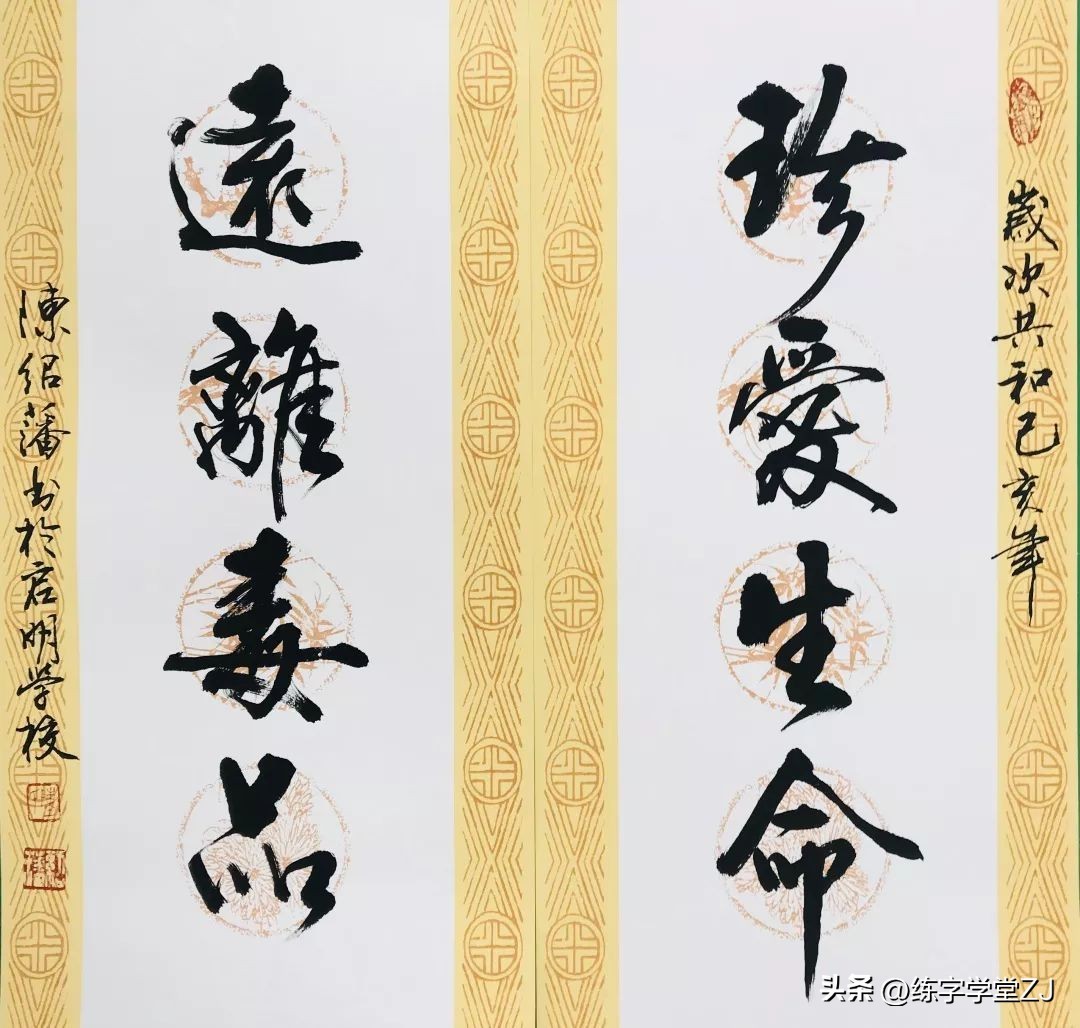 歲次共和己亥年
珍愛生命
遠離毒品
陳紹藩书於启明学校
头条 @练字学堂ZJ